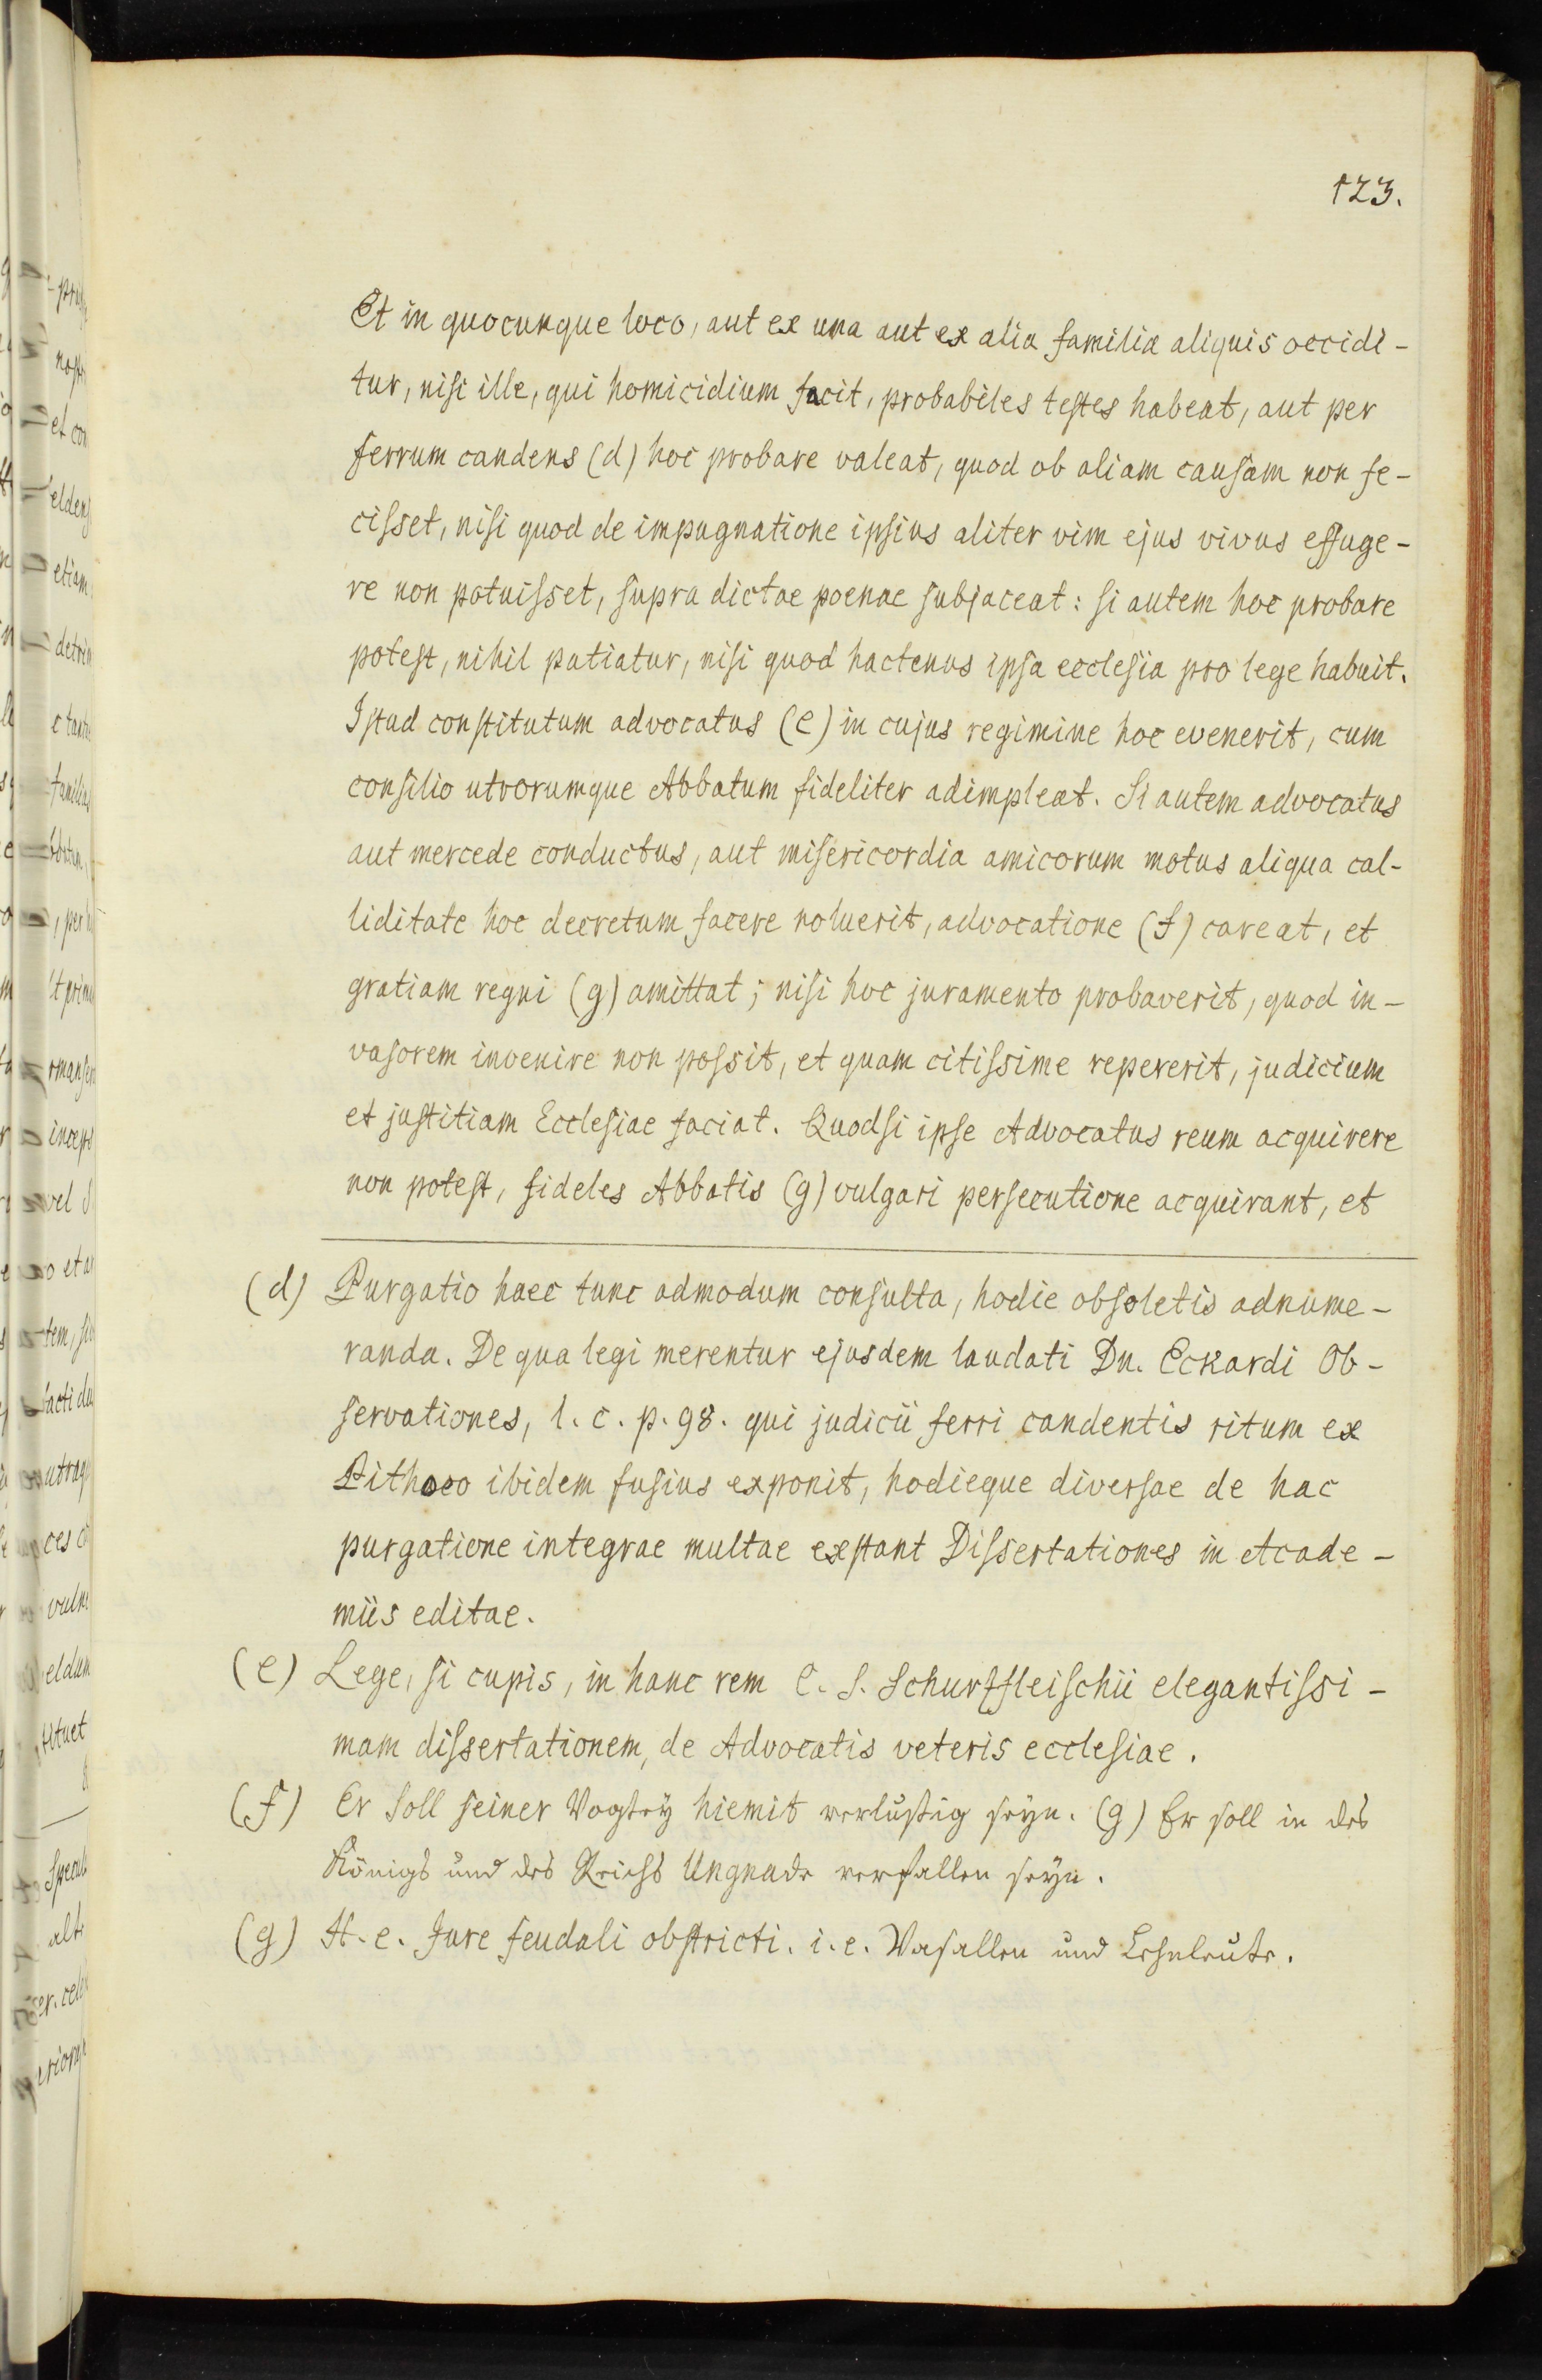 123.
Et in quocunque loco, aut ex una aut ex alia familia aliquis occidi-
tur, nisi ille, qui homicidium facit, probabiles testes habeat, aut per
ferrum candens (d) hoc probare valeat, quod ob aliam causam non fe-
cisset, nisi quod de impugnatione ipsius aliter vim ejus vivus effuge-
re non potuisset, supra dictae poenae subjaceat: si autem hoc probare
potest, nihil patiatur, nisi quod hactenus ipsa ecclesia pro lege habuit.
Istud constitutum advocatus (e) in cujus regimine hoc evenerit, cum
consilio utrorumque Abbatum fideliter adimpleat. Si autem advocatus
aut mercede conductus, aut misericordia amicorum motus aliqua cal-
liditate hoc decretum facere noluerit, advocatione (f) careat, et
gratiam regni (g) amittat; nisi hoc juramento probaverit, quod in-
vasorem invenire non possit, et quam citissime repererit, judicium
et justitiam Ecclesiae faciat. Quodsi ipse Advocatus reum acquirere
non potest, fideles Abbatis (g) vulgari persecutione acquirant, et
(d) Purgatio haec tunc admodum consulta, hodie obsoletis adnume-
randa. De qua legi merentur ejusdem laudati Dn. Eckardi Ob-
servationes, l. c. p. 98. qui judicii ferri candentis ritum ex
Pithoeo ibidem fusius exponit, hodieque diversae de hac
purgatione integrae multae exstant Dissertationes in Acade-
miis editae.
(e) Lege, si cupis, in hanc rem C. S. Schurtzfleischii elegantissi-
mam dissertationem, de Advocatis veteris ecclesiae.
(f) Er soll seiner Vogtey hiemit verlustig seyn. (g) Er soll in des
Königs und des Reichs Ungnade verfallen seyn.
(g) H. e. Jure feudali obstricti. i. e. Vasallen und Lehnleute.